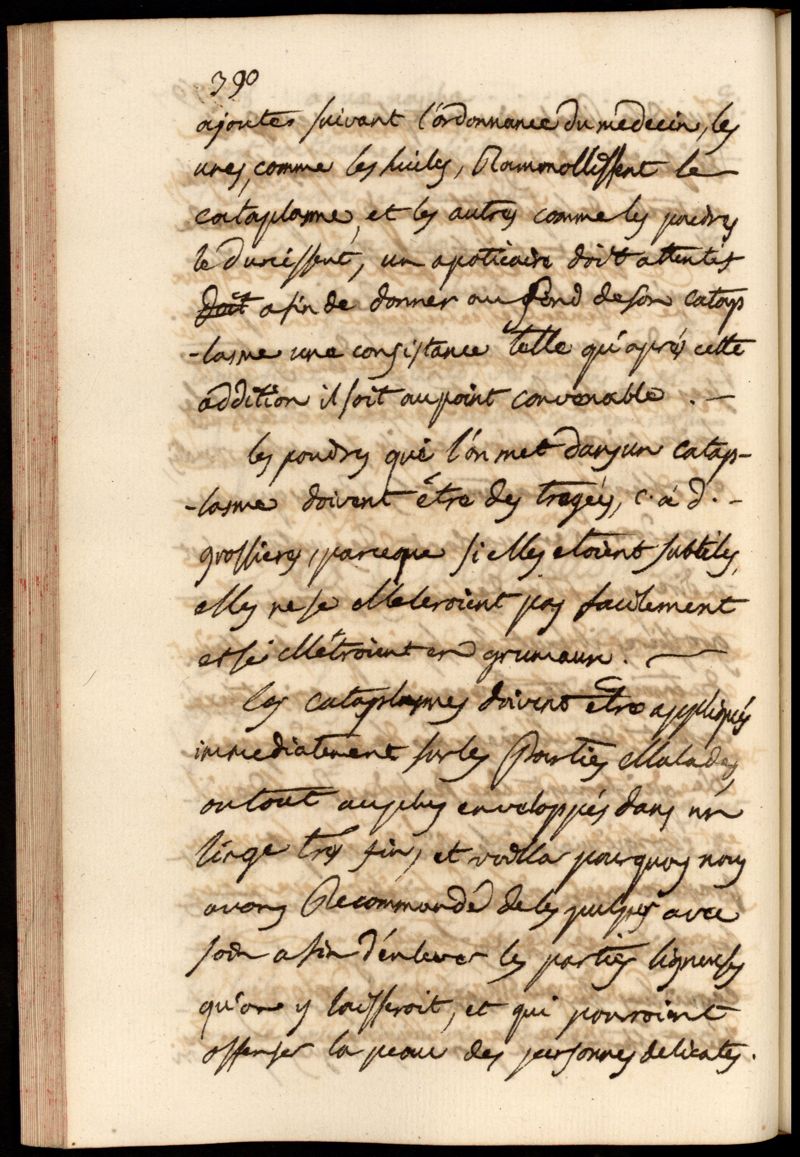 390
ajouter suivant l'ordonnance du medecin, les
unes, comme les huiles, Rammollissent le
cataplasme, et les autres comme les poudres
le durcissent, un apoticaire doit attentif
doit afin de donner au fond de son catap
-lasme une consistance telle qu'aprés cette
addition il soit au point convenable . —
les poudres que l'on met dans un catap-
-lasme doivent être des tragées, c. a d. -
grossieres, parceque si elles etoient subtiles,
elles ne se Meleroient pas facilement
et se Mettroient en grumaux. —
les cataplasmes doivent être appliqués
immediatement sur les Parties Malades,
ou tout au plus enveloppés dans un
linge tres fin, et voilla pourquoy nous
avons Recommandé de les pulper avec
soin afin d'enlever les parties ligneuses
qu'on y laisseroit, et qui pourroient
offenser la peau des personnes delicates.